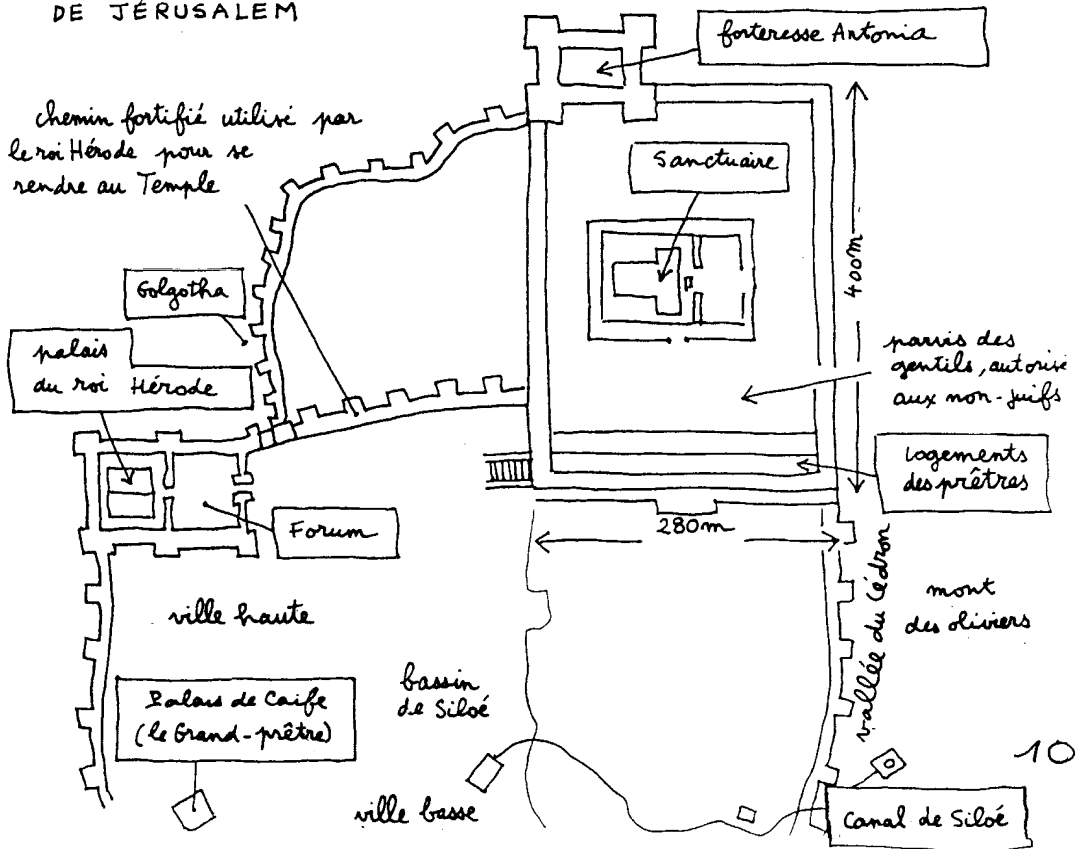 DE JÉRUSALEM
forteresse Antonia
chemin fortifié utilisé par
le roi Hérode pour se
rendre au Temple
Sanctuaire
400m
Golgotha
palais
du roi Hérode
parvis des
gentils, autorisé
aux non-juifs
Logements
des prêtres
Forum
280m
vallée du Cédron
mont
des oliviers
ville haute
bassin
de Siloé
Palais de Caïfe
(le Grand-prêtre)
10
ville basse
Canal de Siloé